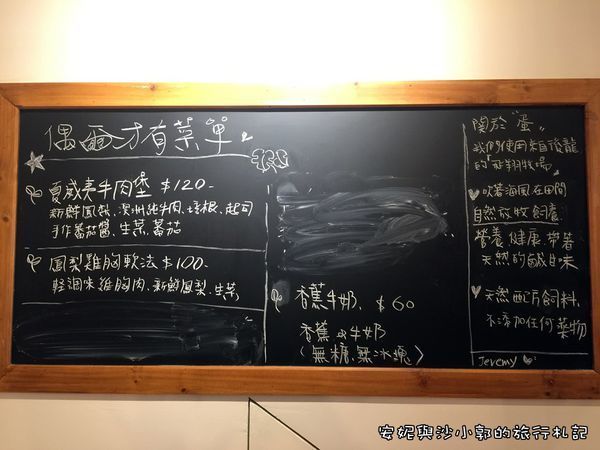 偶爾才有菜單
夏威夷牛肉堡 $120-
新鮮鳳梨、澳洲純牛肉、培根、起司
手作蕃茄醬、生菜、蕃茄
鳳梨雞胸軟法 $100-
輕調味雞胸肉、新鮮鳳梨、生菜
香蕉牛奶 $60
香蕉&牛奶
(無糖、無冰塊)
關於"蛋"
我們使用來自後龍
的"野翔牧場"
吹著海風在田間
自然放牧飼養
營養、健康、帶著
天然的鹹甘味
天然配方飼料,
不添加任何藥物
Jeremy
安妮與沙小郭的旅行札記